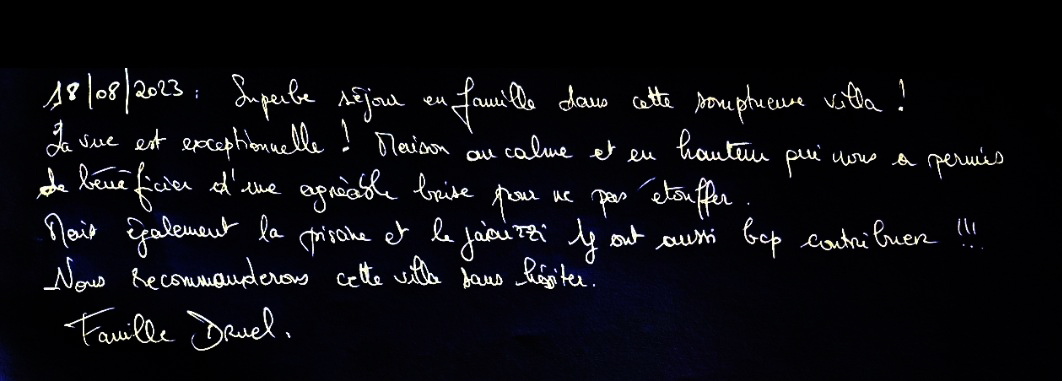 18/08/2023 : Superbe séjour en famille dans cette somptueuse villa !
La vue est exceptionnelle ! Maison au calme et en hauteur qui nous a permis
de bénéficier d'une agréable brise pour ne pas étouffer.
Mais également la piscine et le jacuzzi y ont aussi bcp contribuer !!!
Nous recommanderons cette villa sans hésiter.
Famille Druel.